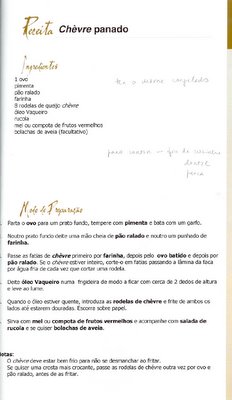 Receita Chèvre panado
Ingredientes
1 ovo
pimenta
pão ralado
farinha
8 rodelas de queijo chèvre
óleo Vaqueiro
rucola
mel ou compota de frutos vermelhos
bolachas de aveia (facultativo)
Modo de Preparação
Parta o ovo para um prato fundo, tempere com pimenta e bata com um garfo.
Noutro prato fundo deite uma mão cheia de pão ralado e noutro um punhado de
farinha.
Passe as fatias de chèvre primeiro por farinha, depois pelo ovo batido e depois por
pão ralado. Se o chèvre estiver inteiro, corte-o em fatias passando a lâmina da faca
por água fria de cada vez que cortar uma rodela.
Deite óleo Vaqueiro numa frigideira de modo a ficar com cerca de 2 dedos de altura
e leve ao lume.
Quando o óleo estiver quente, introduza as rodelas de chèvre e frite de ambos os
lados até estarem douradas. Escorra sobre papel.
Sirva com mel ou compota de frutos vermelhos e acompanhe com salada de
rucola e se quiser bolachas de aveia.
otas:
O chèvre deve estar bem frio para não se desmanchar ao fritar.
Se quiser uma crosta mais crocante, passe as rodelas de chèvre outra vez por ovo e
pão ralado, antes de as fritar.